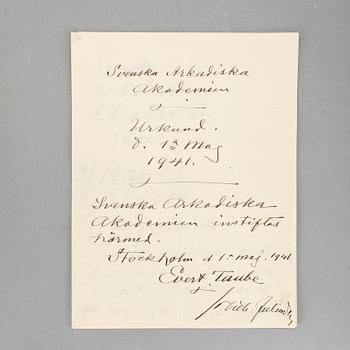 Svenska Arkadiska
Akademien
Urkund.
d. 1a Maj
1941.
Svenska Arkadiska
Akademien instiftas
härmed.
Stockholm d 1a maj. 1941
Evert Taube